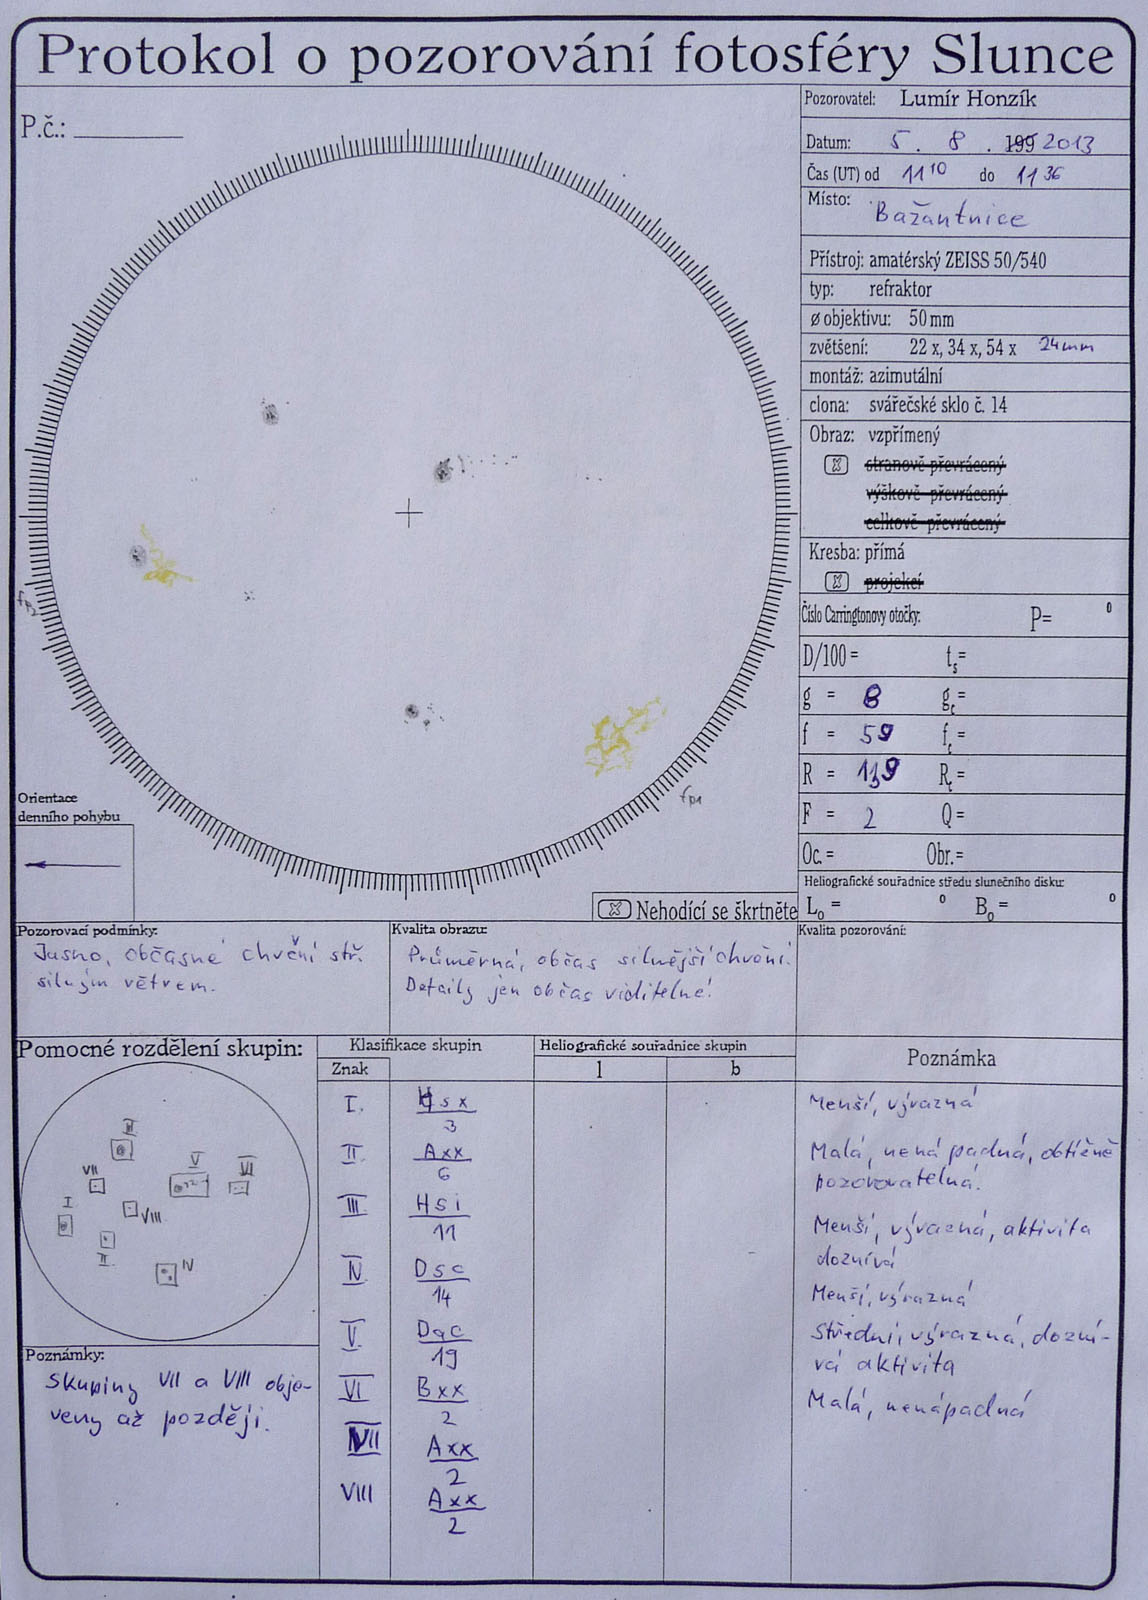 Protokol o pozorování fotosféry Slunce
P.č.:
Pozorovatel: Lumír Honzík
Datum: 5. 8. 199 2013
Čas (UT) od 11 10 do 11 36
Místo: Bažantnice
Přístroj: amatérský ZEISS 50/540
typ: refraktor
ø objektivu: 50 mm
zvětšení: 22 x, 34 x, 54 x 24mm
montáž: azimutální
clona: svářečské sklo č. 14
Obraz: vzpřímený
x stranově převrácený
výškově převrácený
celkově převrácený
Kresba: přímá
x projekcí
Číslo Carringtonovy otočky: P= °
D/100 = ts=
g = 8 gc=
f = 59 fc=
R = 139 Rc=
F = 2 Q=
Oc.= Obr.=
Heliografické souřadnice středu slunečního disku:
Lo = ° Bo = °
fp2
fp1
Orientace
denního pohybu
x Nehodící se škrtněte
Pozorovací podmínky:
Jasno, občasné chvění stř.
silným větrem.
Kvalita obrazu:
Průměrná, občas silnější chvění.
Detaily jen občas viditelné.
Kvalita pozorování:
Pomocné rozdělení skupin:
III
V
VI
VII
I
VIII
II
IV
Poznámky:
Skupiny VII a VIII obje-
veny až později.
Klasifikace skupin
Heliografické souřadnice skupin
Poznámka
Znak
l
b
I. Hsx Menší, výrazná
3
II. Axx Malá, nenápadná, obtížně
6 pozorovatelná.
III. Hsi Menší, výrazná, aktivita
11 doznívá
IV. Dsc Menší, výrazná
14
V. Dac Střední, výrazná, dozní-
19 vá aktivita
VI Bxx Malá, nenápadná
2
VII Axx
2
VIII Axx
2